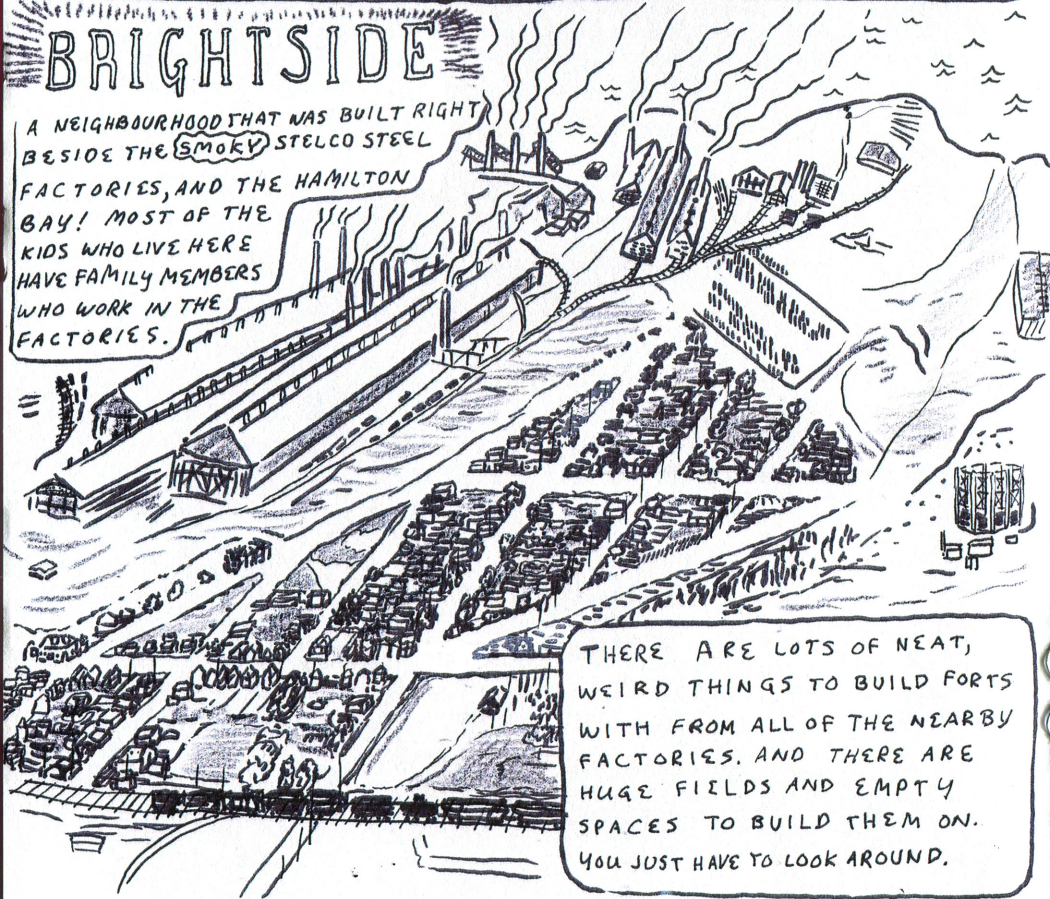 BRIGHTSIDE
A NEIGHBOURHOOD THAT WAS BUILT RIGHT
BESIDE THE SMOKY STELCO STEEL
FACTORIES, AND THE HAMILTON
BAY! MOST OF THE
KIDS WHO LIVE HERE
HAVE FAMILY MEMBERS
WHO WORK IN THE
FACTORIES.
THERE ARE LOTS OF NEAT,
WEIRD THINGS TO BUILD FORTS
WITH FROM ALL OF THE NEARBY
FACTORIES. AND THERE ARE
HUGE FIELDS AND EMPTY
SPACES TO BUILD THEM ON.
YOU JUST HAVE TO LOOK AROUND.